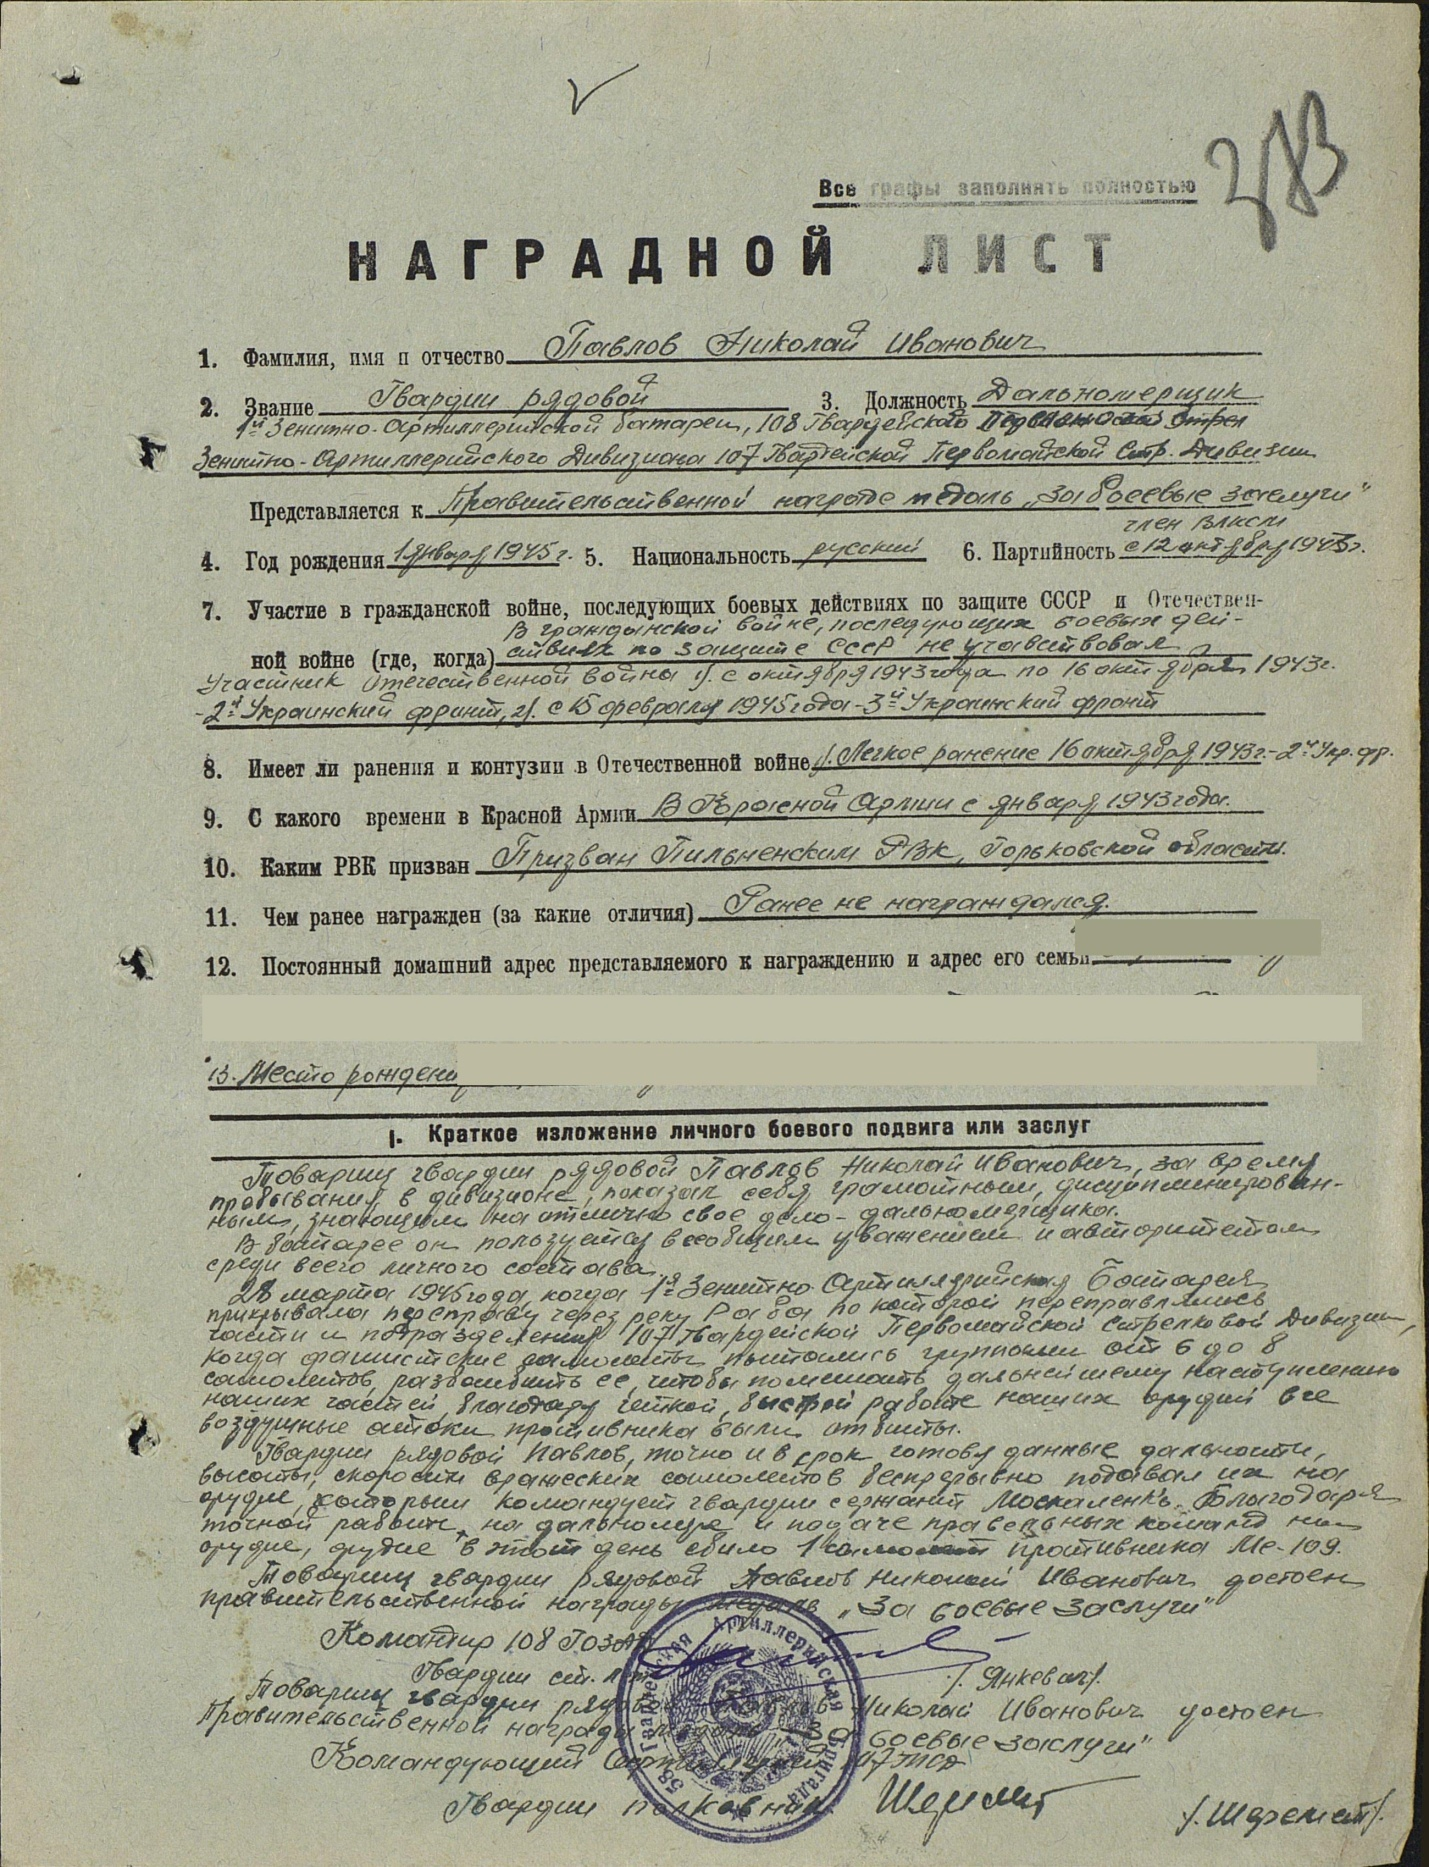 283
Все графы заполнять полностью
НАГРАДНОЙ ЛИСТ
1. Фамилия, имя и отчество Павлов Николай Иванович
2. Звание Гвардии рядовой 3. Должность Дальномерщик
1й Зенитно-Артиллерийской батареи, 108 Гвардейского
Зенитно-Артиллерийского Дивизиона 107 Гвардейской Первомайской Стр. Дивизии
Представляется к Правительственной награде медаль „За боевые заслуги"
член ВЛКСМ
4. Год рождения 1 января 1945 г. 5. Национальность русский 6. Партийность с 12 октября 1943 г.
7. Участие в гражданской войне, последующих боевых действиях по защите СССР и Отечествен-
В гражданской войне, последующих боевых дей-
ной войне (где, когда) ствиях по защите СССР не участвовал
Участник Отечественной войны 1/. с октября 1943 года по 16 октября 1943 г.
-2й Украинский фронт, 2/. с 15 февраля 1945 года - 3й Украинский фронт
8. Имеет ли ранения и контузии в Отечественной войне 1/. Легкое ранение 16 октября 1943 г. - 2й Укр. фр.
9. С какого времени в Красной Армии В Красной Армии с января 1943 года.
10. Каким РВК призван Призван Пильненским РВК, Горьковской области.
11. Чем ранее награжден (за какие отличия) Ранее не награждался.
12. Постоянный домашний адрес представляемого к награждению и адрес его семьи
13. Место рождени
I. Краткое изложение личного боевого подвига или заслуг
Товарищ гвардии рядовой Павлов Николай Иванович, за время
пребывания в дивизионе, показал себя грамотным, дисциплинирован-
ным, знающим на отлично свое дело - дальномерщика.
В батарее он пользуется всеобщим уважением и авторитетом
среди всего личного состава.
28 марта 1945 года, когда 1я Зенитно Артиллерийская Батарея
прикрывала переправу через реку Раба по которой переправлялись
части и подразделения 107 Гвардейской Первомайской Стрелковой Дивизии,
когда фашистские самолеты пытались группами от 6 до 8
самолетов, разбомбить ее, чтобы помешать дальнейшему наступлению
наших частей, благодаря четкой, быстрой работе наших орудий все
воздушные атаки противника были отбиты.
Гвардии рядовой Павлов, точно и в срок готовя данные дальности,
высоты, скорости вражеских самолетов беспрерывно подавал их на
орудие, которым командует гвардии сержант Москаленко. Благодаря
точной работы, на дальномере и подаче правельных команд на
орудие, орудие в этот день сбило 1 самолет противника Ме-109.
Товарищ гвардии рядовой Павлов Николай Иванович достоен
правительственной награды медаль „За боевые заслуги"
Командир 108 ГОЗАД
Гвардии ст. лт. /. Янкевич/.
Товарищ гвардии рядовой Павлов Николай Иванович достоен
Правительственной награды медаль „За боевые заслуги"
Командующий Артиллерией 107 ГСД
Гвардии полковник Шеремет /. Шеремет/.
58 Гвардейская Артиллерийская Бригада